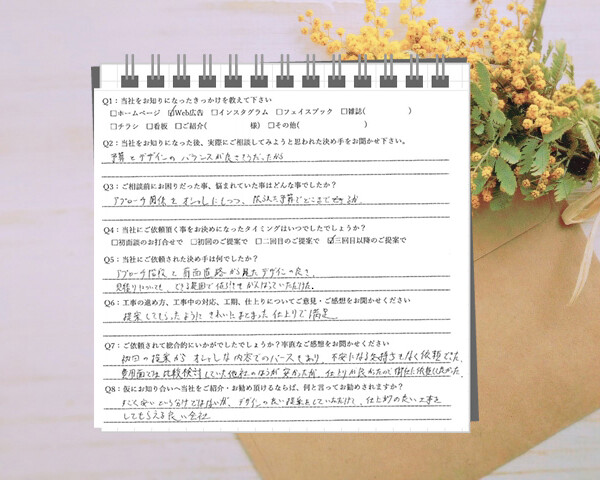 Q1：当社をお知りになったきっかけを教えて下さい
□ホームページ ☑Web広告 □インスタグラム □フェイスブック □雑誌( )
□チラシ □看板 □ご紹介( 様) □その他( )
Q2：当社をお知りになった後、実際にご相談してみようと思われた決め手をお聞かせ下さい。
予算とデザインのバランスが良さそうだったから
Q3：ご相談前にお困りだった事、悩まれていた事はどんな事でしたか？
アプローチ関係をオシャレにしつつ、限られた予算でどこまでやるか。
Q4：当社にご依頼頂く事をお決めになったタイミングはいつでしたでしょうか？
□初面談のお打合せで □初回のご提案で □二回目のご提案で ☑三回目以降のご提案で
Q5：当社にご依頼された決め手は何でしたか？
アプローチ階段と前面道路から見たデザインの良さ。
見積りについても、できる範囲で値引きをがんばっていただけた。
Q6：工事の進め方、工事中の対応、工期、仕上りについてご意見・ご感想をお聞かせください
提案してもらったようにきれいにまとまった仕上りで満足。
Q7：ご依頼されて総合的にいかがでしたでしょうか？率直なご感想をお聞かせください
初回の提案からオシャレな内容でのパースもあり、不安になる気持ちもなく依頼できた。
費用面では比較検討していた他社のほうが安かったが、仕上りが良かったので御社に依頼して良かった。
Q8：仮にお知り合いへ当社をご紹介・お勧め頂けるならば、何と言ってお勧めされますか？
すごく安いという分けではないが、デザインの良い提案をしていただけて、仕上りの良い工事を
してもらえる良い会社